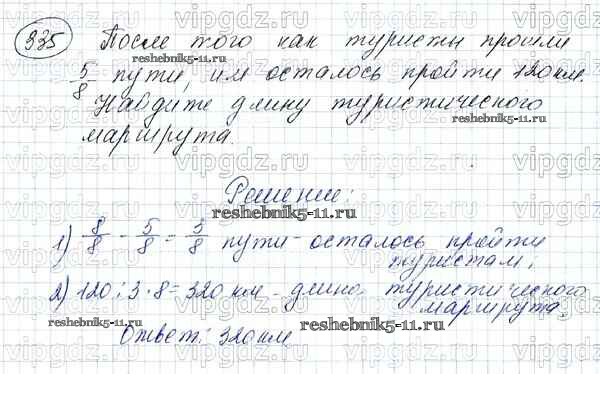 335 После того как туристы прошли
5/8 пути, им осталось пройти 120 км.
Найдите длину туристического
маршрута.
Решение:
1) 8/8 - 5/8 = 3/8 пути - осталось пройти
туристам;
2) 120 : 3 · 8 = 320 км - длина туристического
маршрута.
Ответ: 320 км
vipgdz.ru
reshebnik5-11.ru